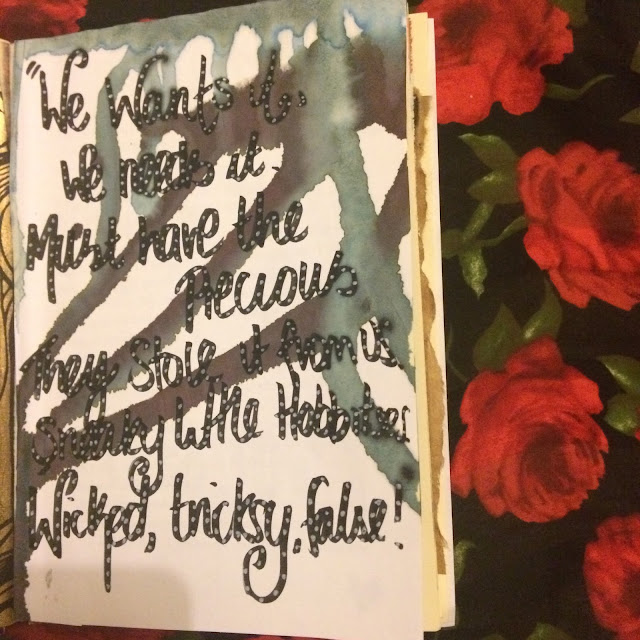 "We Wants it,
We needs it
Must have the
Precious
They Stole it from us,
Sneaky little Hobbitses
Wicked, tricksy, false!